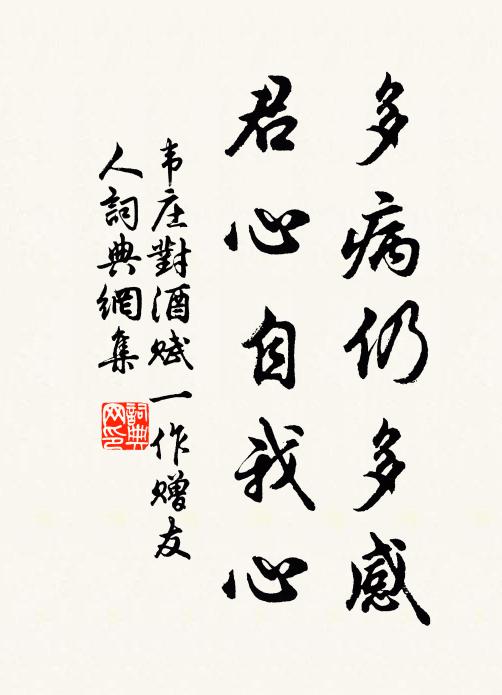 多病仍多感
君心自我心
韦庄對酒赋一作赠友
人詞典網集
詞典
网印